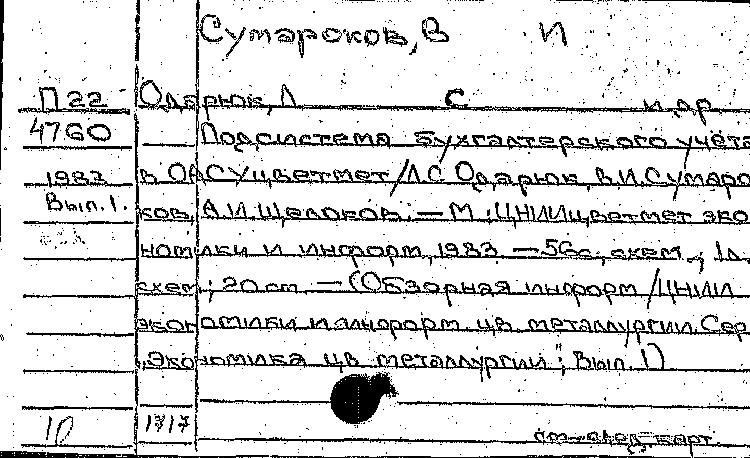 Сумароков, В И
П 22 Одарюк, Л С и др
4760 Подсистема бухгалтерского учёта
1983 в ОАСУцветмет / Л.С. Одарюк, В.И. Сумаро
Вып. 1. ков, А.И. Щелоков. — М : ЦНИИцветмет эко
номики и информ, 1983. — 56с., схем., 1л.
схем; 20 см. — (Обзорная информ / ЦНИИ
экономики и информ цв металлургии. Сер
"Экономика цв металлургии"; Вып. 1)
10 1717 см. след. карт.